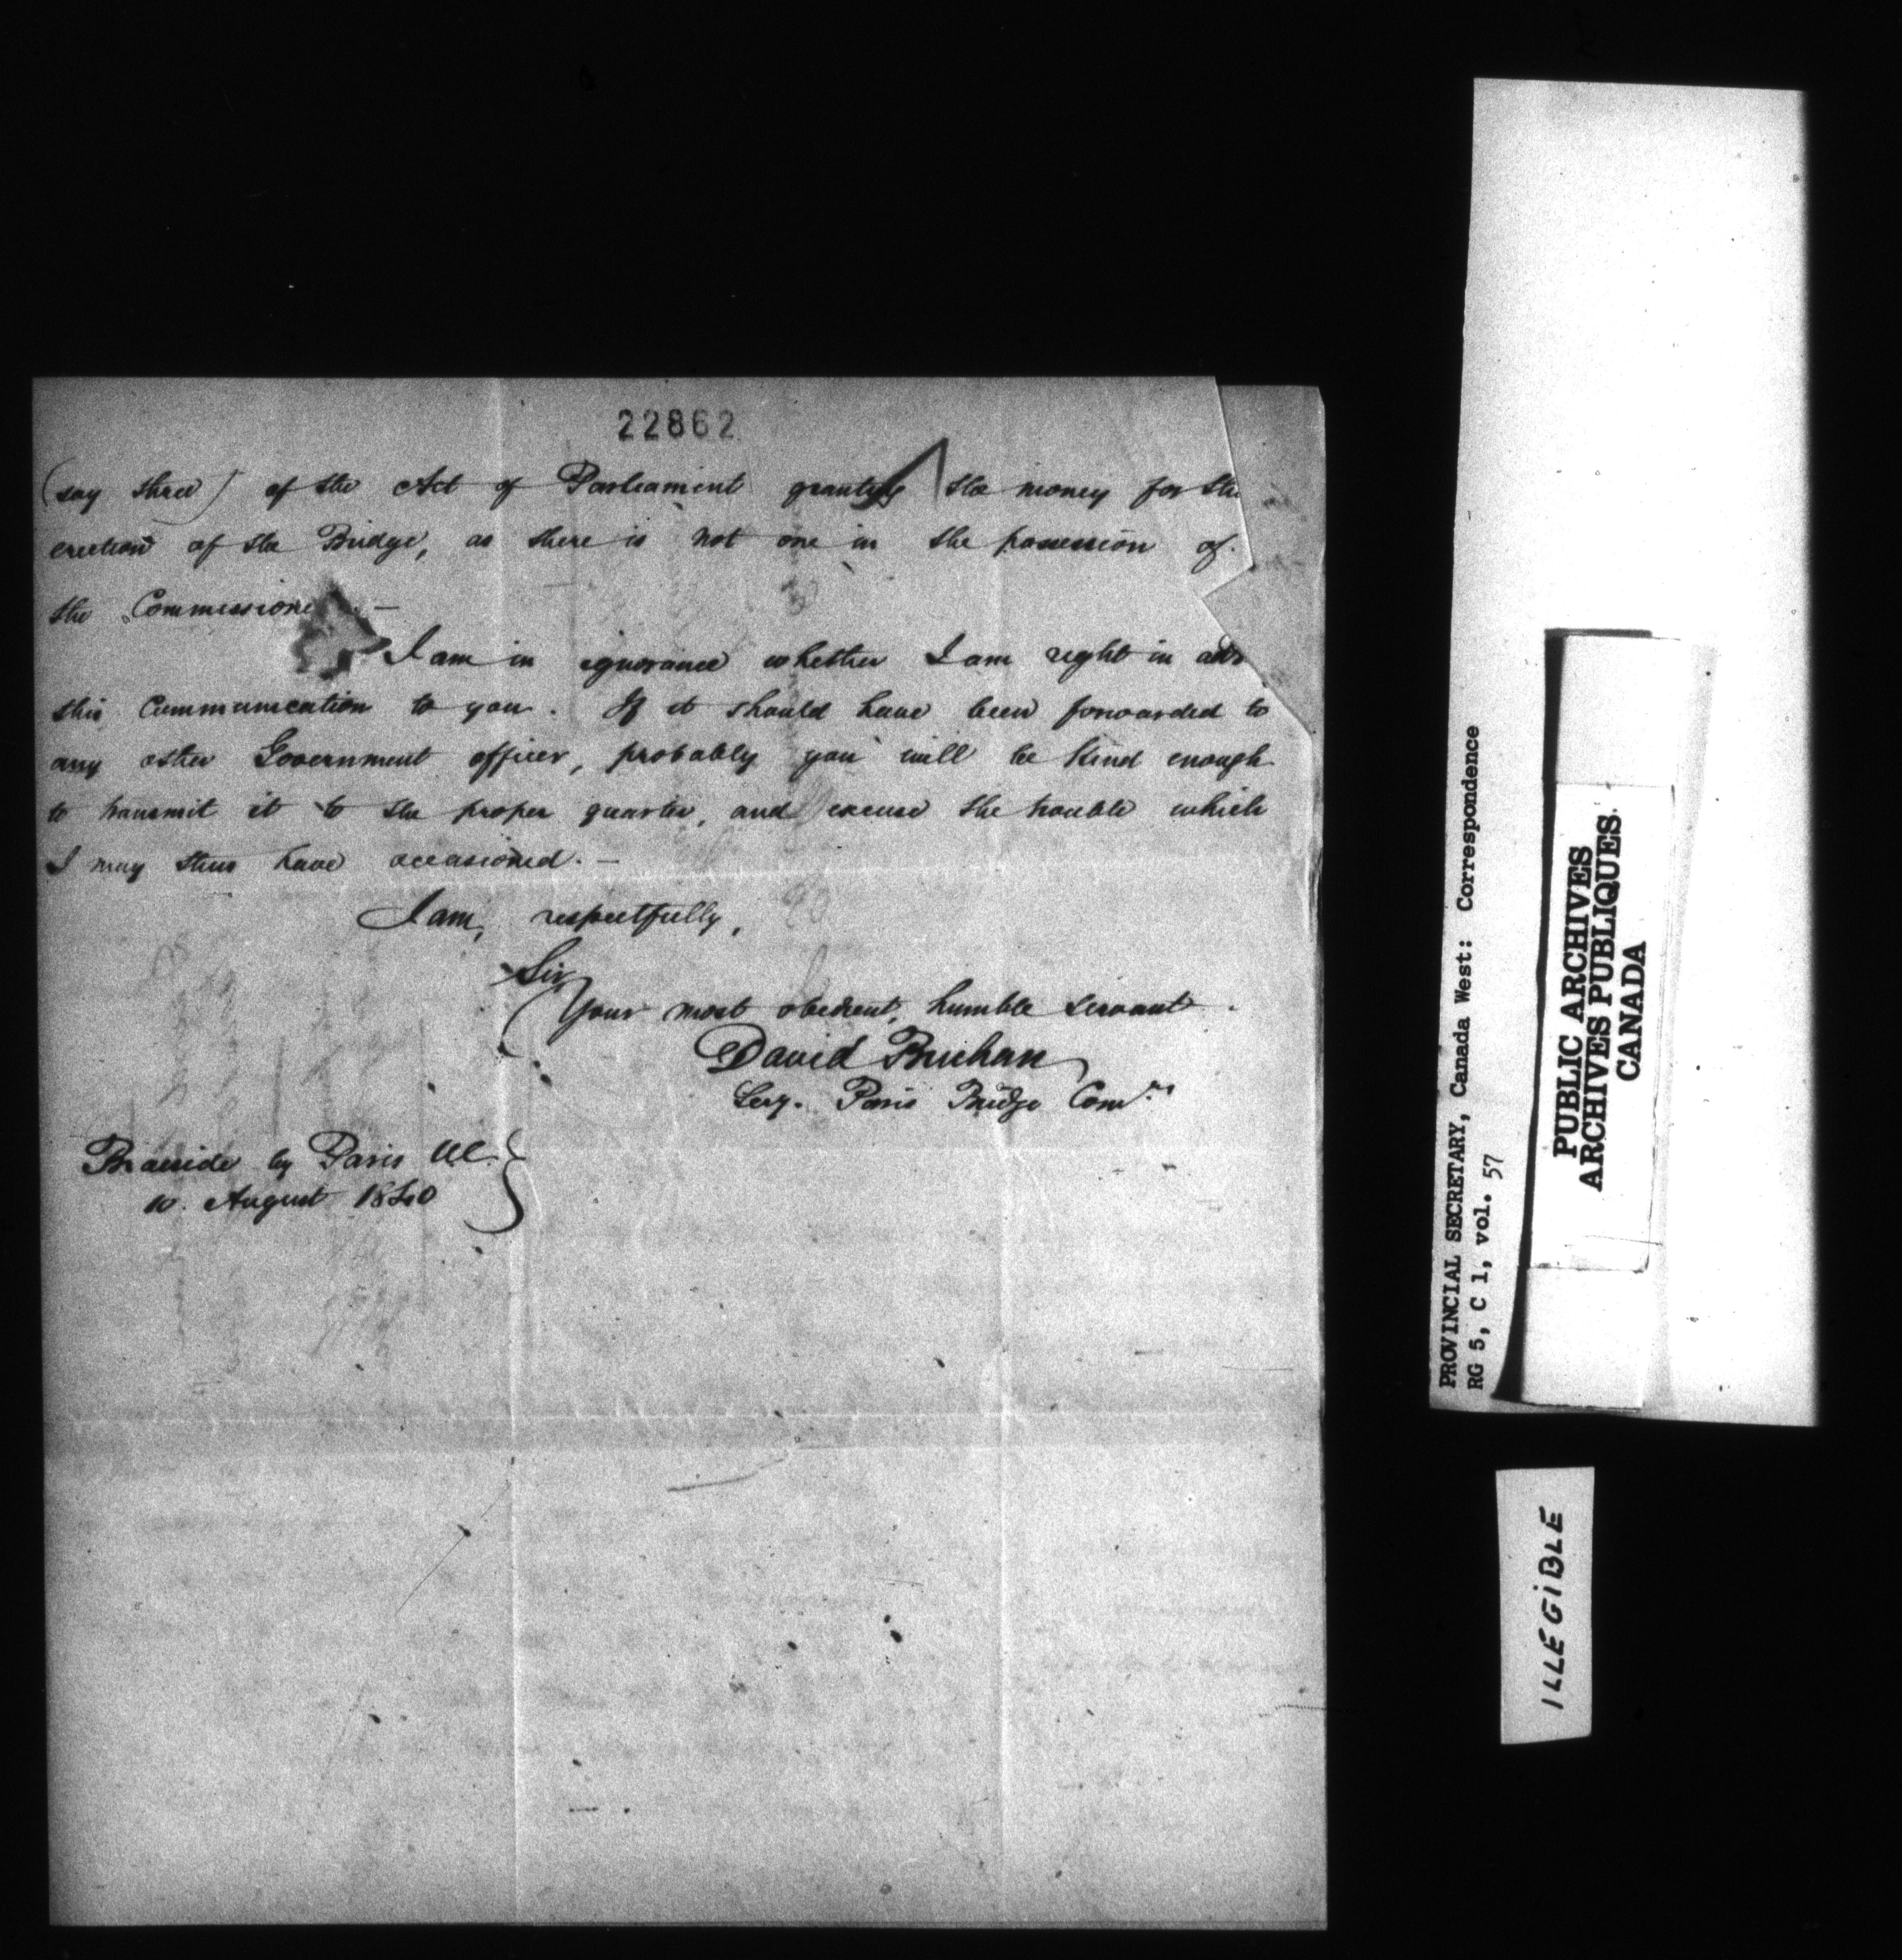 22862
(say three) of the Act of Parliament granting the money for the
erection of the Bridge, as there is not one in the possession of
the Commissioners. —
I am in ignorance whether I am right in add
this communication to you. If it should have been forwarded to
any other Government officer, probably you will be kind enough
to transmit it to the proper quarter, and excuse the trouble which
I may thus have occasioned. —
I am, respectfully,
Sir,
Your most obedient, humble servant.
David Buchan
Secy. Paris Bridge Comrs.
Braeside by Paris UC.
10. August 1840
PROVINCIAL SECRETARY, Canada West: Correspondence
RG 5, C 1, vol. 57
PUBLIC ARCHIVES
ARCHIVES PUBLIQUES
CANADA
ILLEGIBLE